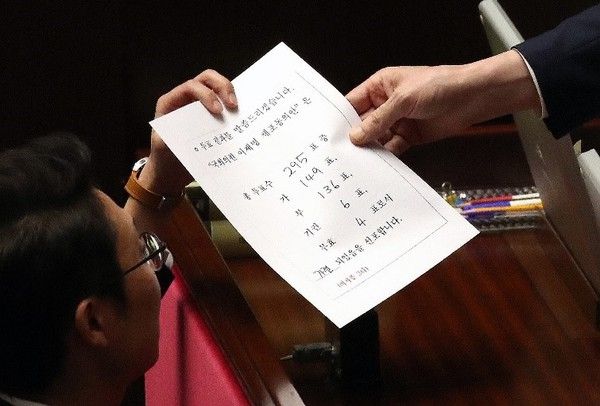 ○ 투표 결과를 말씀드리겠습니다.
"국회의원 이재명 체포동의안"은
총 투표수 295표 중
가 149표,
부 136표,
기권 6표,
무효 4표로서
가결 되었음을 선포합니다.